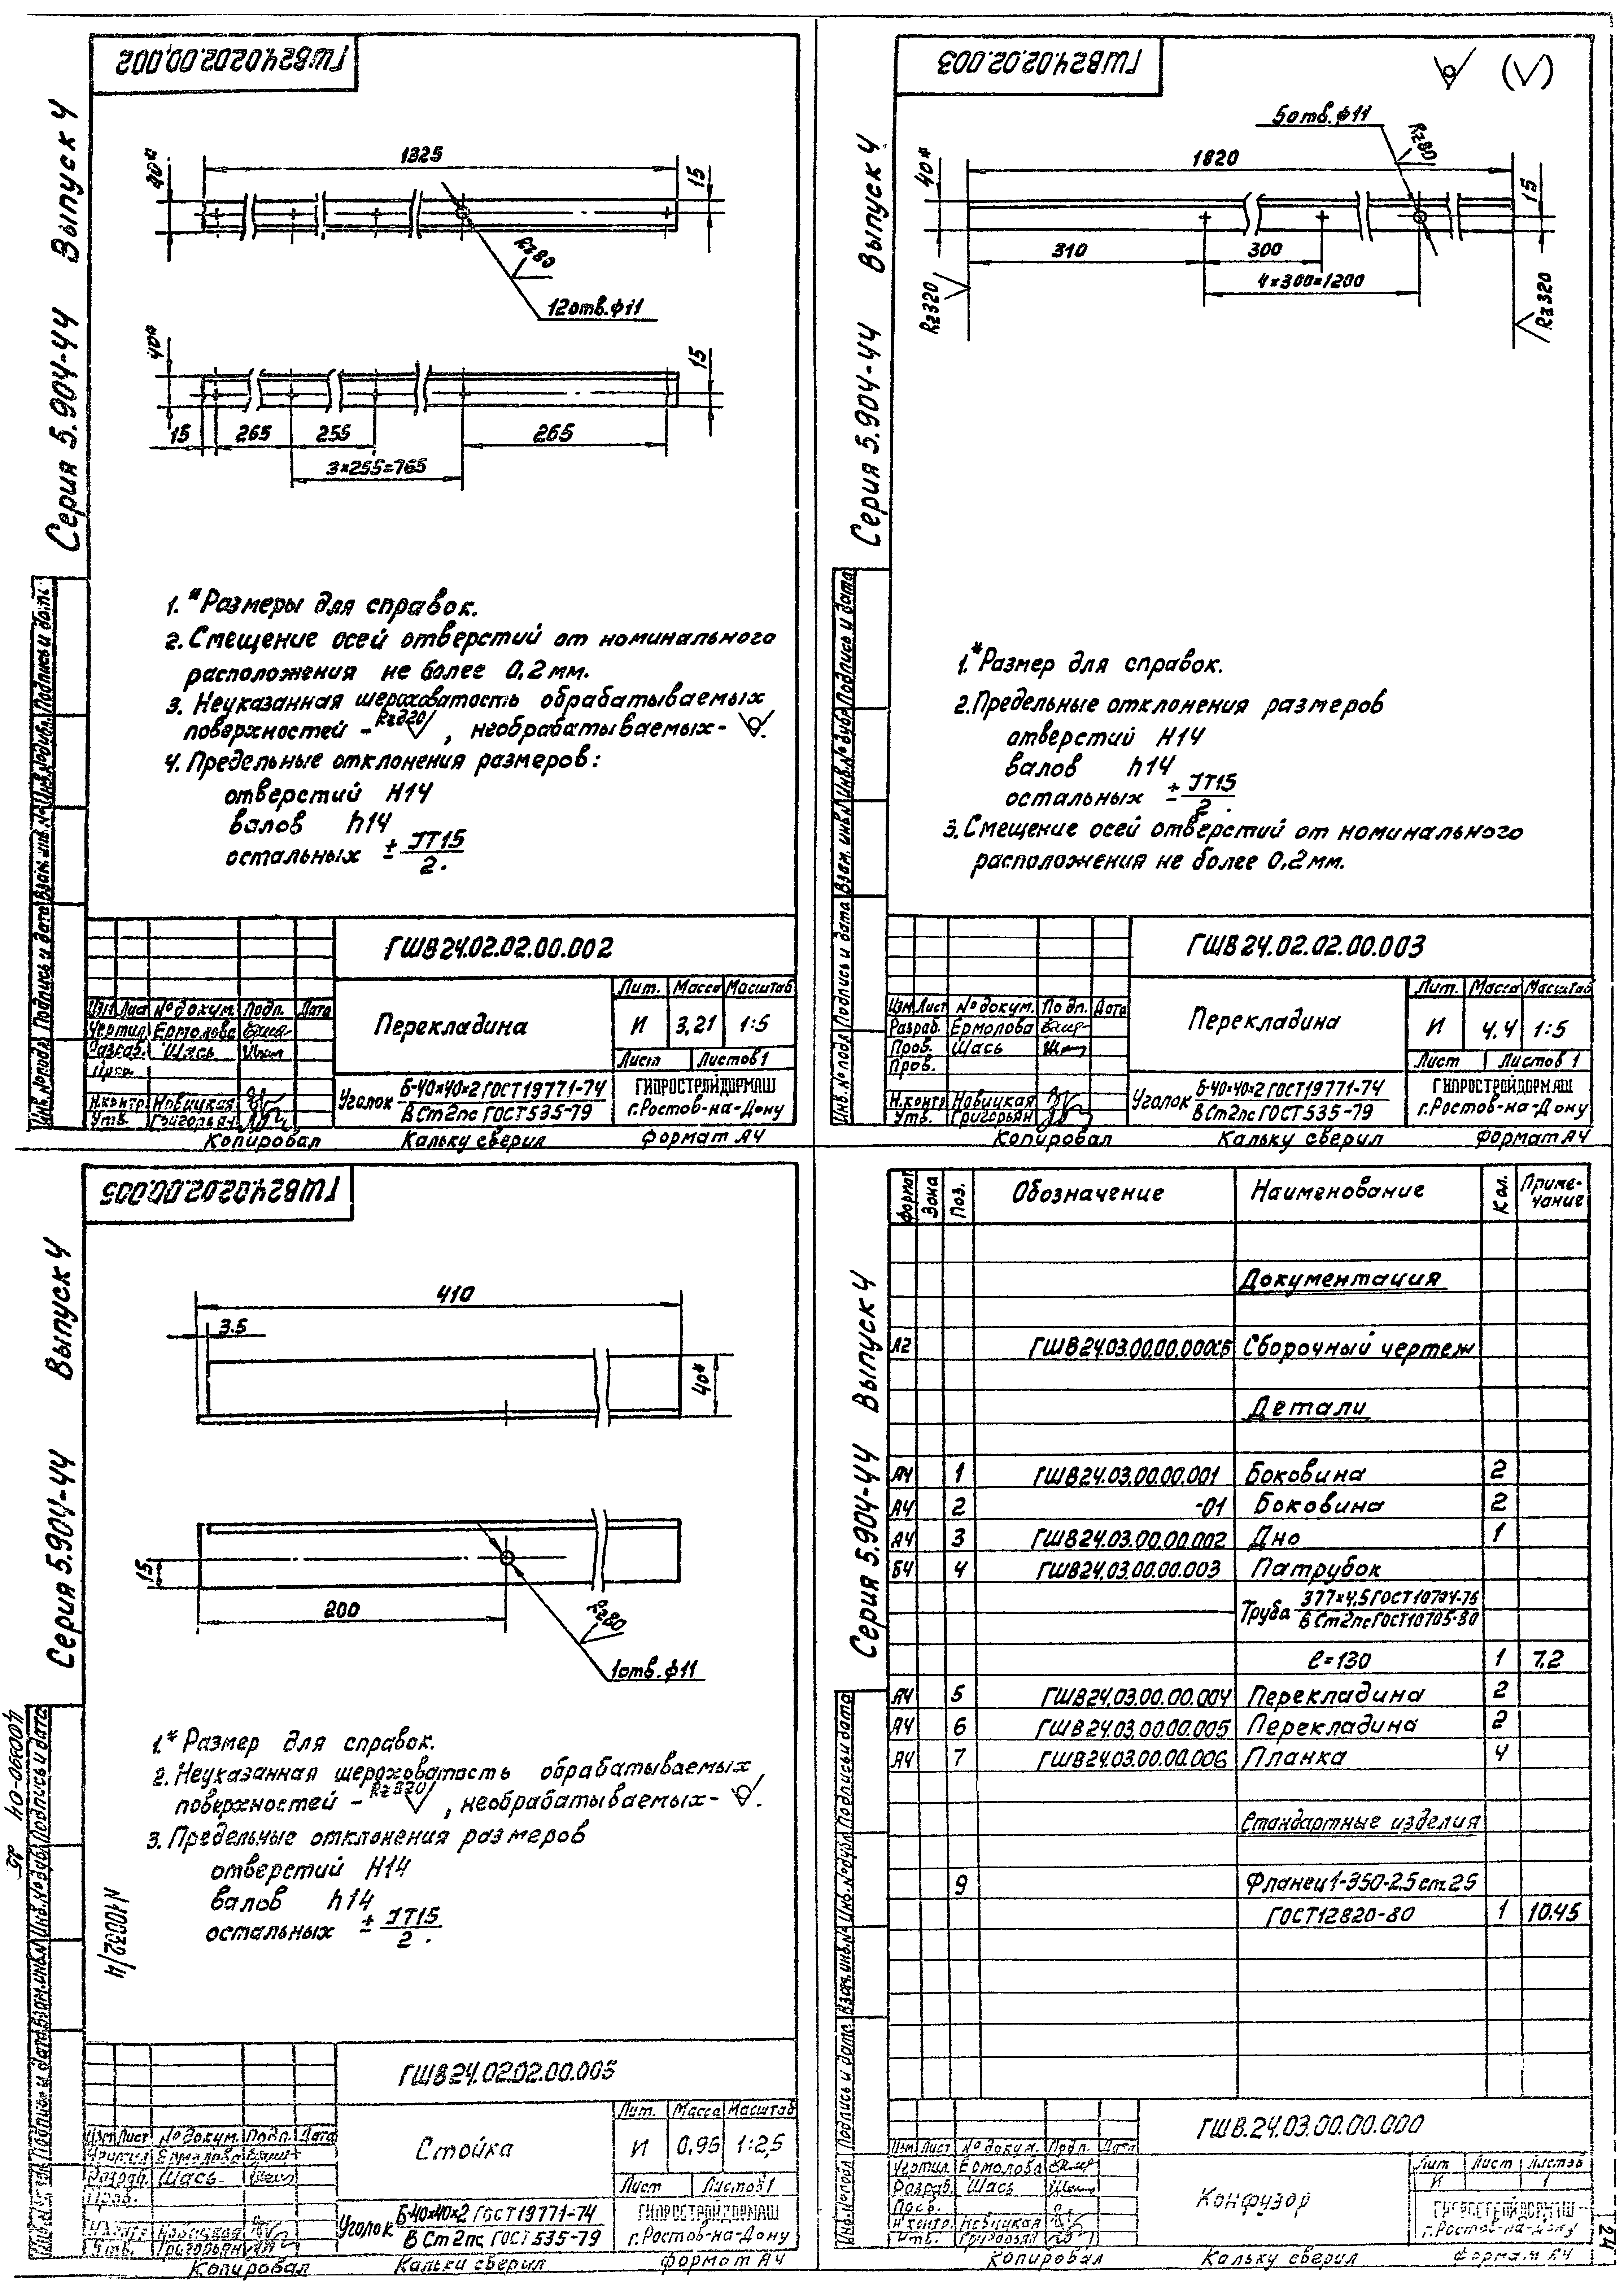 ГШВ24.02.02.00.002
Серия 5.904-44 Выпуск 4
1325
40*
15
Rz80
12отв.ф11
40*
15
15
265
255
265
3×255=765
1.*Размеры для справок.
2. Смещение осей отверстий от номинального
расположения не более 0,2 мм.
3. Неуказанная шероховатость обрабатываемых
поверхностей - Rz320, необрабатываемых - .
4. Предельные отклонения размеров:
отверстий H14
валов h14
остальных ± IT15/2.
Инв.№подл. Подпись и дата Взам.инв.№ Инв.№дубл. Подпись и дата
ГШВ24.02.02.00.002
Изм Лист №докум. Подп. Дата
Чертил Ермолова
Разраб. Шась
Пров.
Н.контр. Новицкая
Утв. Григорьян
Перекладина
Лит. Масса Масштаб
И 3,21 1:5
Лист Листов 1
Уголок Б-40×40×2 ГОСТ19771-74
ВСт2пс ГОСТ535-79
ГИПРОСТРОЙДОРМАШ
г.Ростов-на-Дону
Копировал Кальку сверил Формат А4
ГШВ24.02.02.003
Серия 5.904-44 Выпуск 4
(√)
5отв.ф11
Rz80
1820
40*
15
310
300
4×300=1200
Rz320
Rz320
1.*Размер для справок.
2.Предельные отклонения размеров
отверстий H14
валов h14
остальных ± IT15/2.
3. Смещение осей отверстий от номинального
расположения не более 0,2 мм.
Инв.№подл. Подпись и дата Взам.инв.№ Инв.№дубл. Подпись и дата
ГШВ24.02.02.00.003
Изм Лист №докум. Подп. Дата
Разраб. Ермолова
Пров. Шась
Пров.
Н.контр. Новицкая
Утв. Григорьян
Перекладина
Лит. Масса Масштаб
И 4,4 1:5
Лист Листов 1
Уголок Б-40×40×2 ГОСТ19771-74
ВСт2пс ГОСТ535-79
ГИПРОСТРОЙДОРМАШ
г.Ростов-на-Дону
Копировал Кальку сверил Формат А4
ГШВ24.02.02.00.005
Серия 5.904-44 Выпуск 4
410
3.5
40*
15
200
Rz80
1отв.ф11
1.* Размер для справок.
2. Неуказанная шероховатость обрабатываемых
поверхностей - Rz320, необрабатываемых - .
3. Предельные отклонения размеров
отверстий H14
валов h14
остальных ± IT15/2.
Подпись и дата Взам.инв.№ Инв.№дубл. Подпись и дата
ГШВ24.02.02.00.005
Изм Лист №докум. Подп. Дата
Чертил Ермолова
Разраб. Шась
Пров.
Н.контр. Новицкая
Утв. Григорьян
Стойка
Лит. Масса Масштаб
И 0,95 1:2,5
Лист Листов 1
Уголок Б-40×40×2 ГОСТ19771-74
ВСт2пс ГОСТ535-79
ГИПРОСТРОЙДОРМАШ
г.Ростов-на-Дону
Копировал Кальки сверил Формат А4
Серия 5.904-44 Выпуск 4
Формат Зона Поз. Обозначение Наименование Кол. Примечание
Документация
А2 ГШВ24.03.00.00.000СБ Сборочный чертеж
Детали
А4 1 ГШВ24.03.00.00.001 Боковина 2
А4 2 -01 Боковина 2
А4 3 ГШВ24.03.00.00.002 Дно 1
Б4 4 ГШВ24.03.00.00.003 Патрубок
Труба 377×4,5 ГОСТ10704-76
ВСт2пс ГОСТ10705-80
ℓ=130 1 7.2
А4 5 ГШВ24.03.00.00.004 Перекладина 2
А4 6 ГШВ24.03.00.00.005 Перекладина 2
А4 7 ГШВ24.03.00.00.006 Планка 4
Стандартные изделия
9 Фланец 1-350-2.5 ст.25
ГОСТ12820-80 1 10.45
Инв.№подл. Подпись и дата Взам.инв.№ Инв.№дубл. Подпись и дата
ГШВ.24.03.00.00.000
Изм Лист №докум. Подп. Дата
Чертил. Ермолова
Разраб. Шась
Н.контр. Новицкая
Утв. Григорьян
Конфузор
Лит Лист Листов
И 1
ГИПРОСТРОЙДОРМАШ
г.Ростов-на-Дону
Копировал Кальку сверил Формат А4